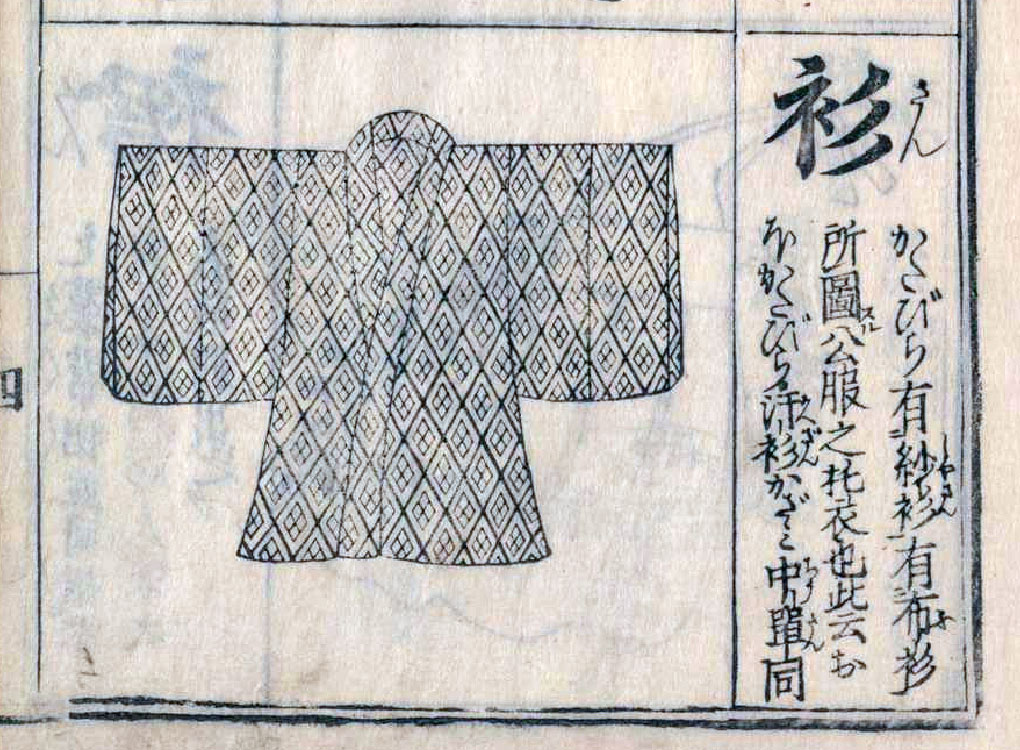 衫
さん
かたびら有紗衫有布衫
所圖スルハ公服之衣也此云お
ほかたびら汗衫かざミ中單同
四